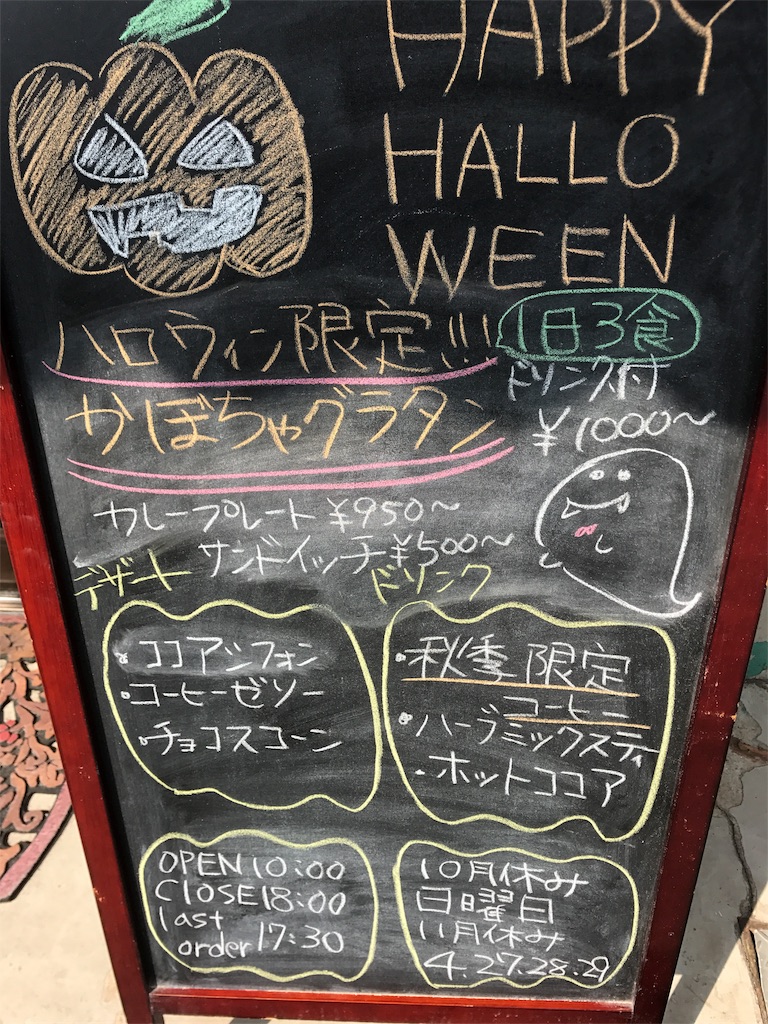 HAPPY
HALLO
WEEN
ハロウィン限定!!! 1日3食
ドリンク付
かぼちゃグラタン ¥1000〜
カレープレート ¥950〜
サンドイッチ¥500〜
デザート
・ココアシフォン
・コーヒーゼリー
・チョコスコーン
ドリンク
・秋季限定
コーヒー
・ハーブミックスティー
・ホットココア
OPEN10:00
CLOSE18:00
last
order17:30
10月休み
日曜日
11月休み
4.27.28.29